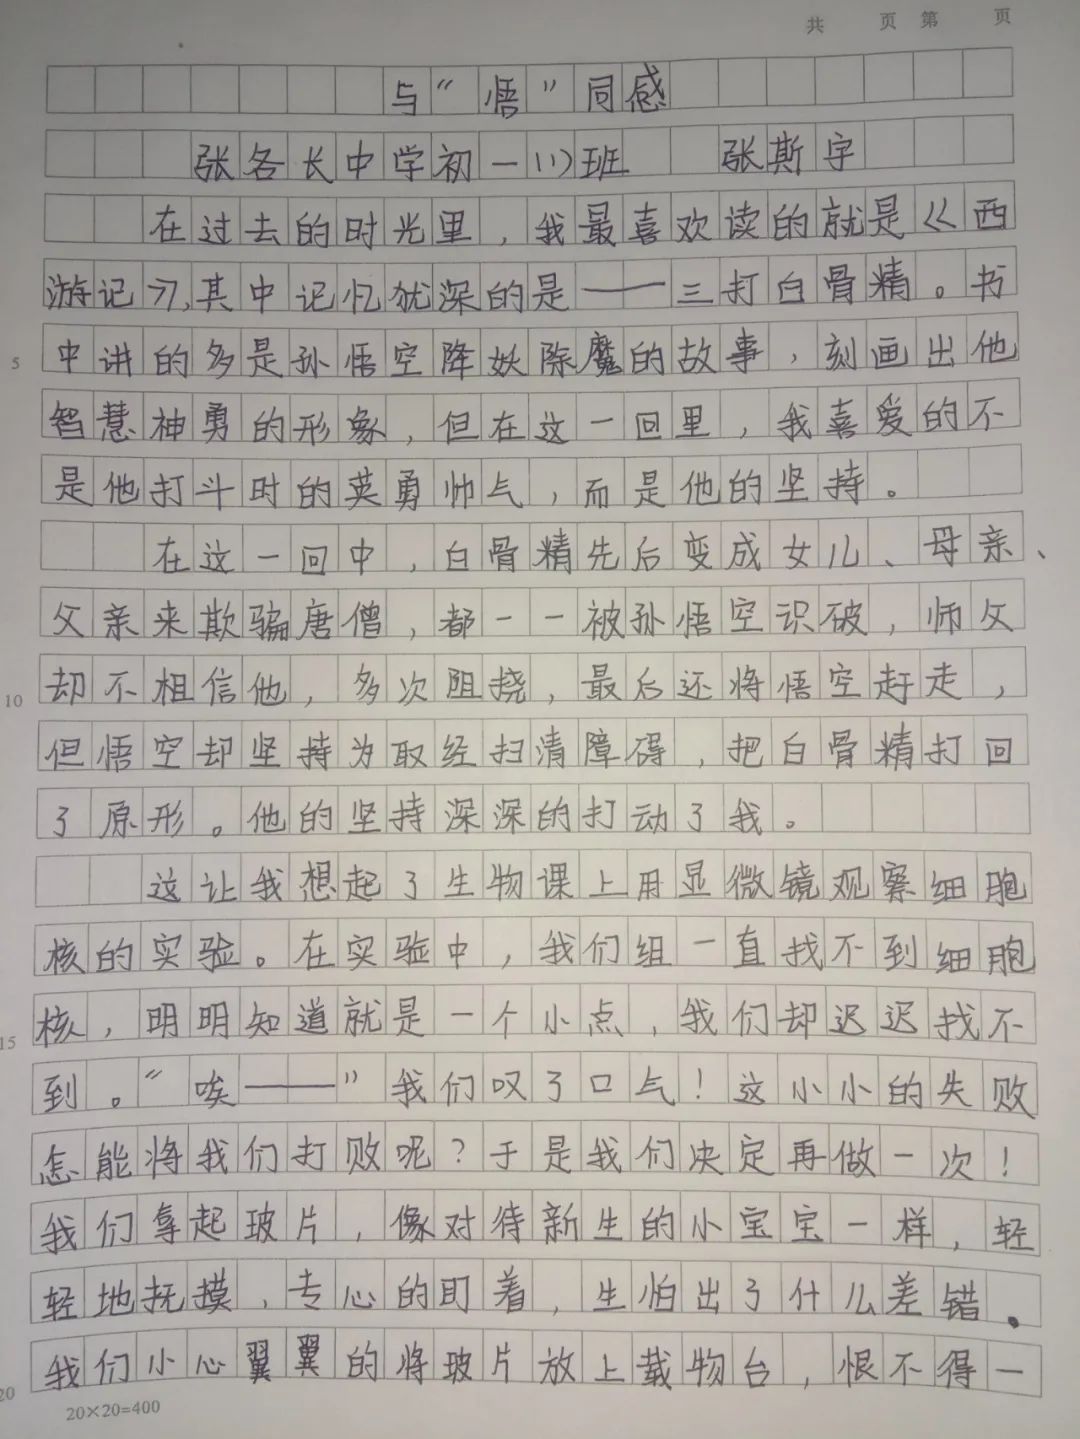 共 页 第 页
与“悟”同感
张各长中学初一(1)班 张斯宇
在过去的时光里，我最喜欢读的就是《西
游记》,其中记忆犹深的是——三打白骨精。书
5 中讲的多是孙悟空降妖除魔的故事，刻画出他
智慧神勇的形象，但在这一回里，我喜爱的不
是他打斗时的英勇帅气，而是他的坚持。
在这一回中，白骨精先后变成女儿、母亲、
父亲来欺骗唐僧，都一一被孙悟空识破，师父
10 却不相信他，多次阻挠，最后还将悟空赶走，
但悟空却坚持为取经扫清障碍，把白骨精打回
了原形。他的坚持深深的打动了我。
这让我想起了生物课上用显微镜观察细胞
核的实验。在实验中，我们组一直找不到细胞
15 核，明明知道就是一个小点，我们却迟迟找不
到。“唉——”我们叹了口气！这小小的失败
怎能将我们打败呢？于是我们决定再做一次！
我们拿起玻片，像对待新生的小宝宝一样，轻
轻地抚摸，专心的盯着，生怕出了什么差错.
20 我们小心翼翼的将玻片放上载物台，恨不得一
20×20=400